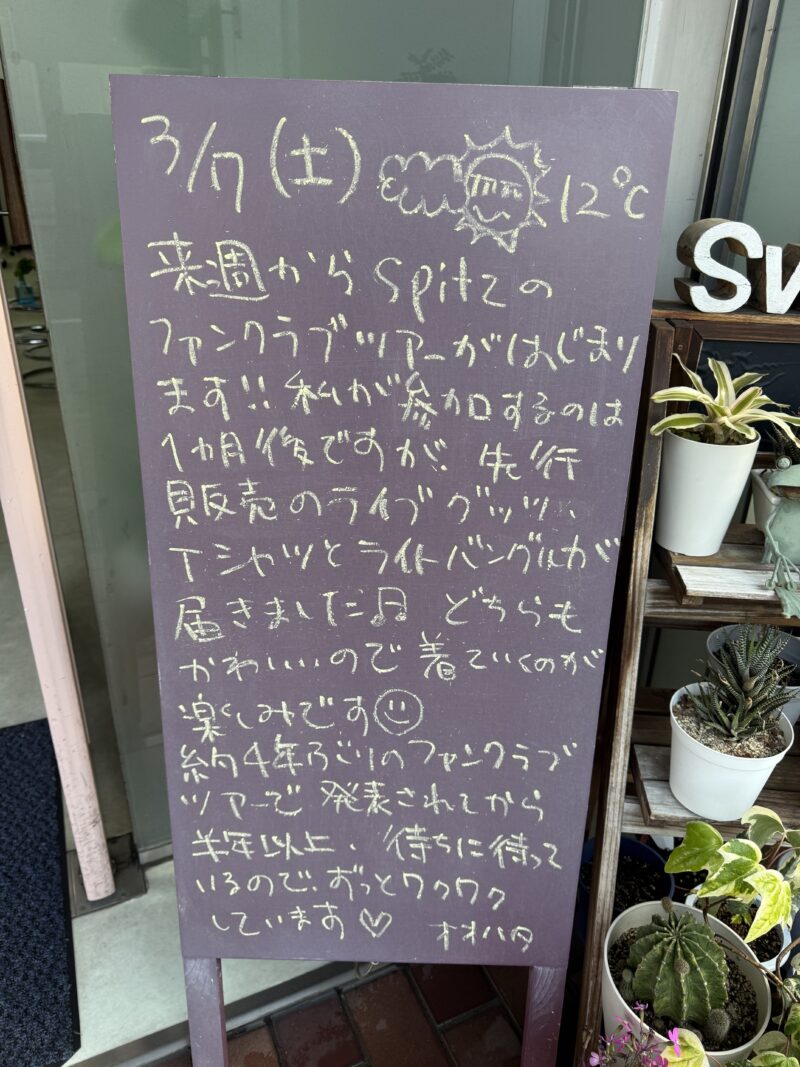 3/7(土) 12℃
来週から Spitzの
ファンクラブツアーがはじまり
ます!! 私が参加するのは
1カ月後ですが、先行
販売のライブグッツ、
Tシャツとライトバングルが
届きました♫ どちらも
かわいいので着ていくのが
楽しみです☺
約4年ぶりのファンクラブ
ツアーで 発表されてから
半年以上、待ちに待って
いるので、ずっとワクワク
しています♡ オオハタ
Sw